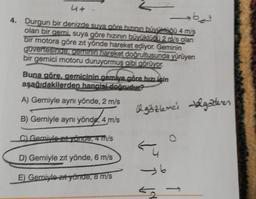 4+
4. Durgun bir denizde suya göre hızının büyüklüğü 4 m/s
olan bir gemi, suya göre hızının büyüklüğü 2 m/s olan
bir motora göre zıt yönde hareket ediyor. Geminin
güvertesinde, geminin hareket doğrultusunda yürüyen
bir gemici motoru duruyormuş gibi görüyor.
Buna göre, gemicinin gemiye göre hızı için
aşağıdakilerden hangisi doğrudur?
A) Gemiyle aynı yönde, 2 m/s
B) Gemiyle aynı yönde, 4 m/s
C) Gemiyle zıt yönde, 4 m/s
D) Gemiyle zıt yönde, 6 m/s
E) Gemiyle zıt yönde, 8 m/s
0
4
6
2